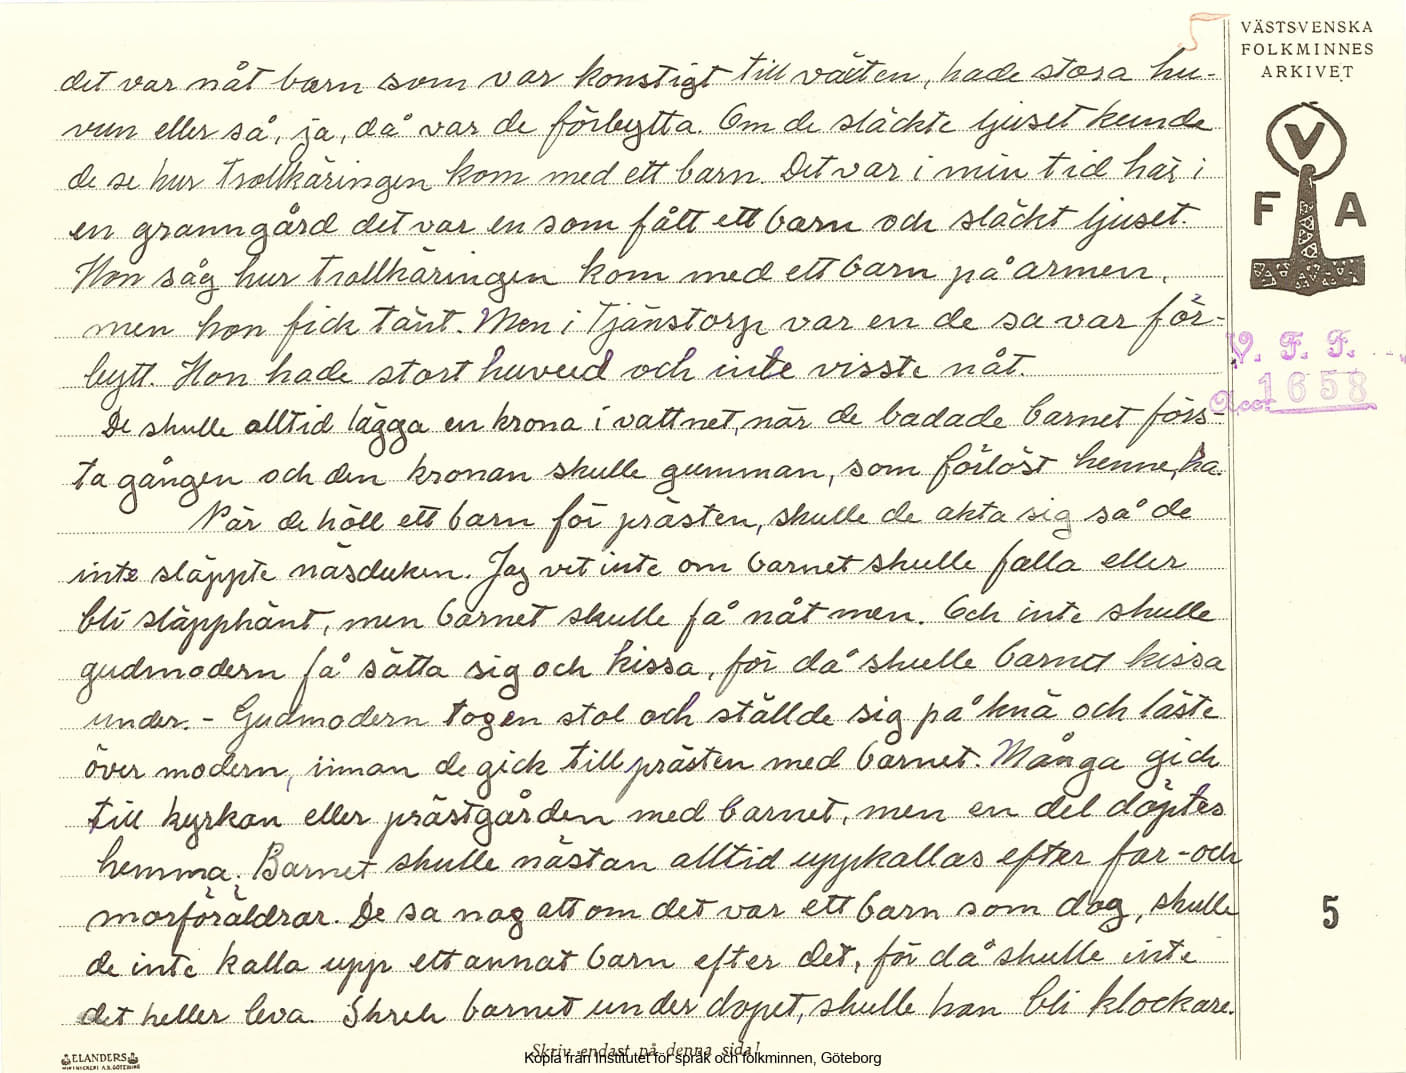 5
VÄSTSVENSKA
FOLKMINNES
ARKIVET
V
F A
V. F. F.
Acc. 1658
det var nåt barn som var konstigt till växten, hade stora hu-
vun eller så, ja, då var de förbytta. Om de släckte ljuset kunde
de se hur trollkäringen kom med ett barn. Det var i min tid här i
en granngård det var en som fått ett barn och släckt ljuset.
Hon såg hur trollkäringen kom med ett barn på armen,
men hon fick tänt. Men i Tjänstorp var en de sa var för-
bytt. Hon hade stort huvud och inte visste nåt.
De skulle alltid lägga en krona i vattnet, när de badade barnet förs-
ta gången och den kronan skulle gumman, som förlöst henne, ha.
När de höll ett barn för prästen, skulle de akta sig så de
inte släppte näsduken. Jag vet inte om barnet skulle falla eller
bli släpphänt, men barnet skulle få nåt men. Och inte skulle
gudmodern få sätta sig och kissa, för då skulle barnet kissa
under. - Gudmodern tog en stol och ställde sig på knä och läste
över modern, innan de gick till prästen med barnet. Många gick
till kyrkan eller prästgården med barnet, men en del döptes
hemma. Barnet skulle nästan alltid uppkallas efter far- och
morföräldrar. De sa nog att om det var ett barn som dog, skulle
de inte kalla upp ett annat barn efter det, för då skulle inte
det heller leva. Skrek barnet under dopet, skulle han bli klockare.
5
Skriv endast på denna sida!
ELANDERS
Kopia från Institutet för språk och folkminnen, Göteborg